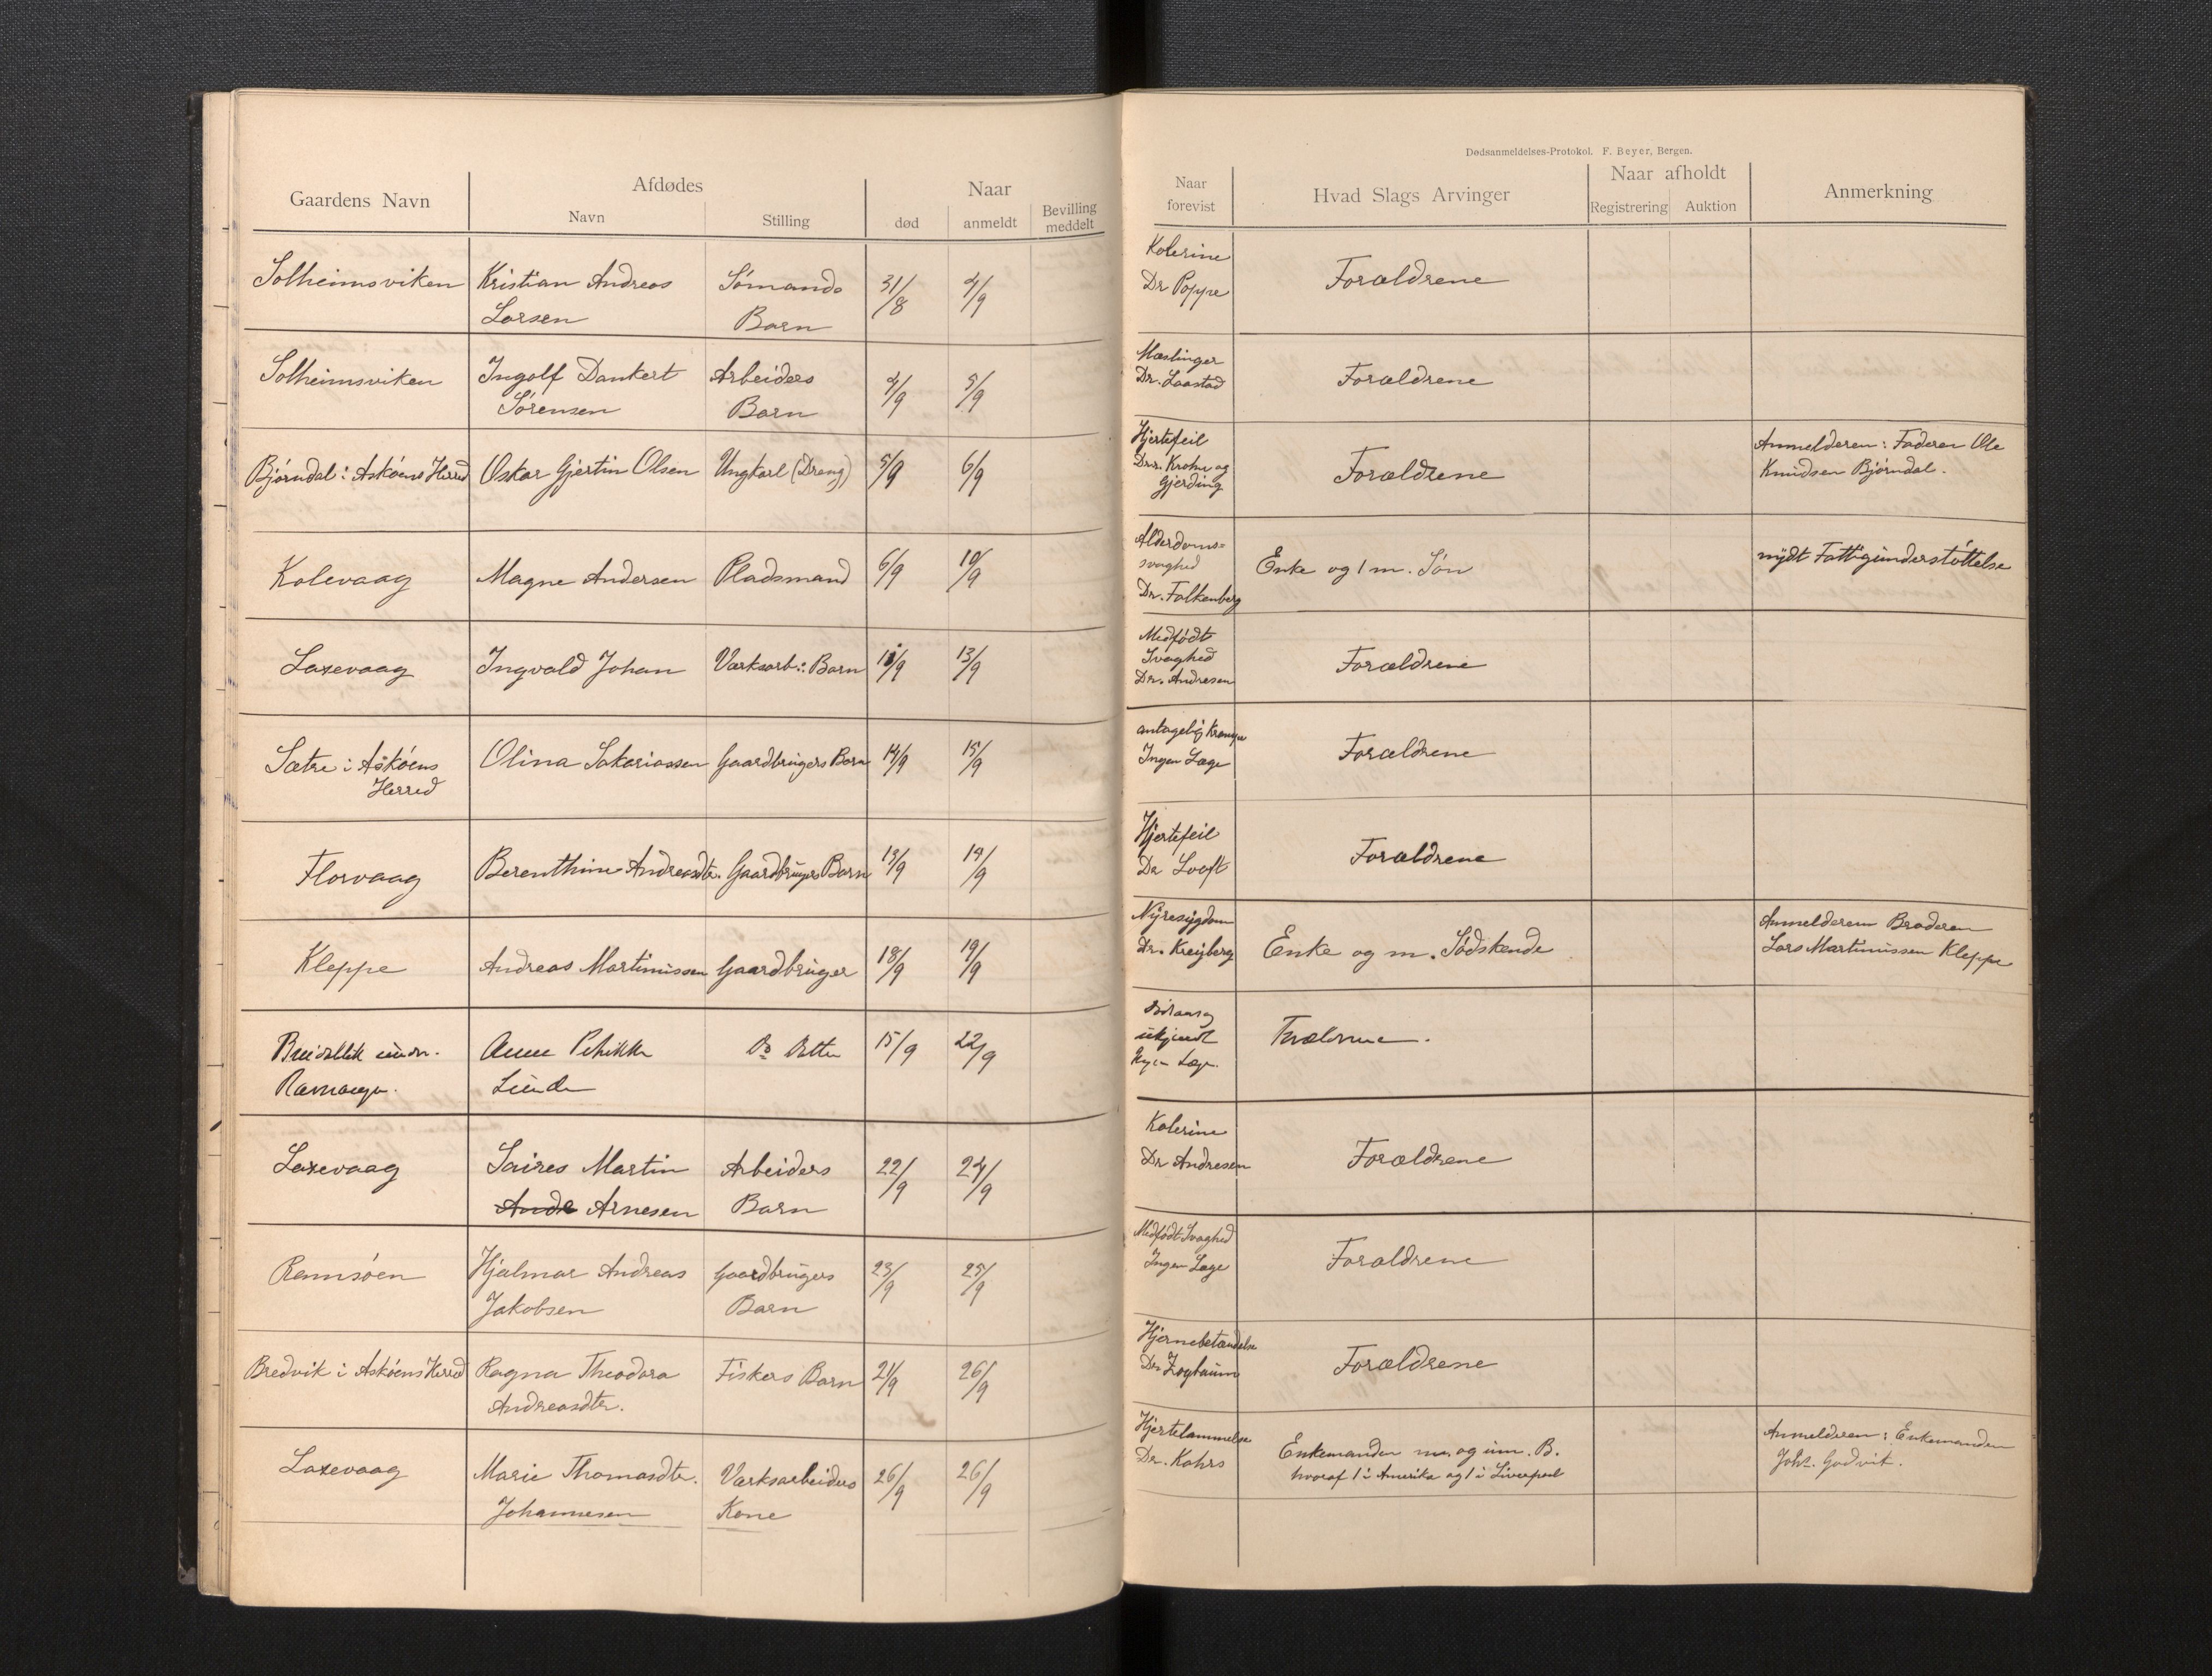 Dødsanmeldelses-Protokol. F. Beyer, Bergen.
Gaardens Navn
Afdødes
Navn
Stilling
Naar
død
anmeldt
Bevilling
meddelt
Naar
forevist
Hvad Slags Arvinger
Naar afholdt
Registrering
Auktion
Anmerkning
Solheimsviken
Kristian Andreas
Larsen
Sømands
Barn
31/8
4/9
Kolerine
Dr Poppe
Forældrene
Solheimsviken
Ingolf Dankert
Sørensen
Arbeiders
Barn
4/9
5/9
Mæslinger
Dr. Laastad
Forældrene
Bjørndal i Askøens Herred
Oskar Gjertin Olsen
Ungkarl (Dreng)
5/9
6/9
Hjertefeil
Drr. Krohn og
Gjerding
Forældrene
Anmelderen: Faderen Ole
Knudsen Bjørndal.
Kolevaag
Magne Andersen
Pladsmand
6/9
10/9
Alderdoms=
svaghed
Dr. Falkenberg
Enke og 1 m. Søn
nydt Fattigunderstøttelse
Laxevaag
Ingvald Johan
Værksarb:: Barn
11/9
13/9
Medfødt
Svaghed
Dr. Andresen
Forældrene
Sætre i Askøens
Herred
Olina Sakariassen
Gaardbrugers Barn
14/9
15/9
antagelig Krampe
Ingen Læge
Forældrene
Florvaag
Berenthine Andreasdtr.
Gaardbrugers Barn
13/9
19/9
Hjertefeil
Dr Looft
Forældrene
Kleppe
Andreas Martinussen
Gaardbruger
18/9
19/9
Nyresygdom
Dr. Kreyberg
Enke og m. Sødskende
Anmelderen Broderen
Lars Martinussen Kleppe
Linde
15/9
22/9
ukjendt
Laxevaag
Saires Martin
Andr Arnesen
Arbeiders
Barn
22/9
24/9
Kolerine
Dr Andresen
Forældrene
Rennsøen
Hjalmar Andreas
Jakobsen
Gaardbrugers
Barn
23/9
25/9
Medfødt Svaghed
Ingen Læge
Forældrene
Bredvik i Askøens Herred
Ragna Theodora
Andreasdtr.
Fiskers Barn
21/9
26/9
Hjernebetændelse
Dr Zogbaum
Forældrene
Laxevaag
Marie Thomasdtr.
Johannesen
Værksarbeiders
Kone
26/9
26/9
Hjertelammelse
Dr. Kahrs
Enkemanden m. og um. B.
hvoraf 1 i Amerika og 1 i Liverpool
Anmelderen: Enkemanden
Johs. Godvik.